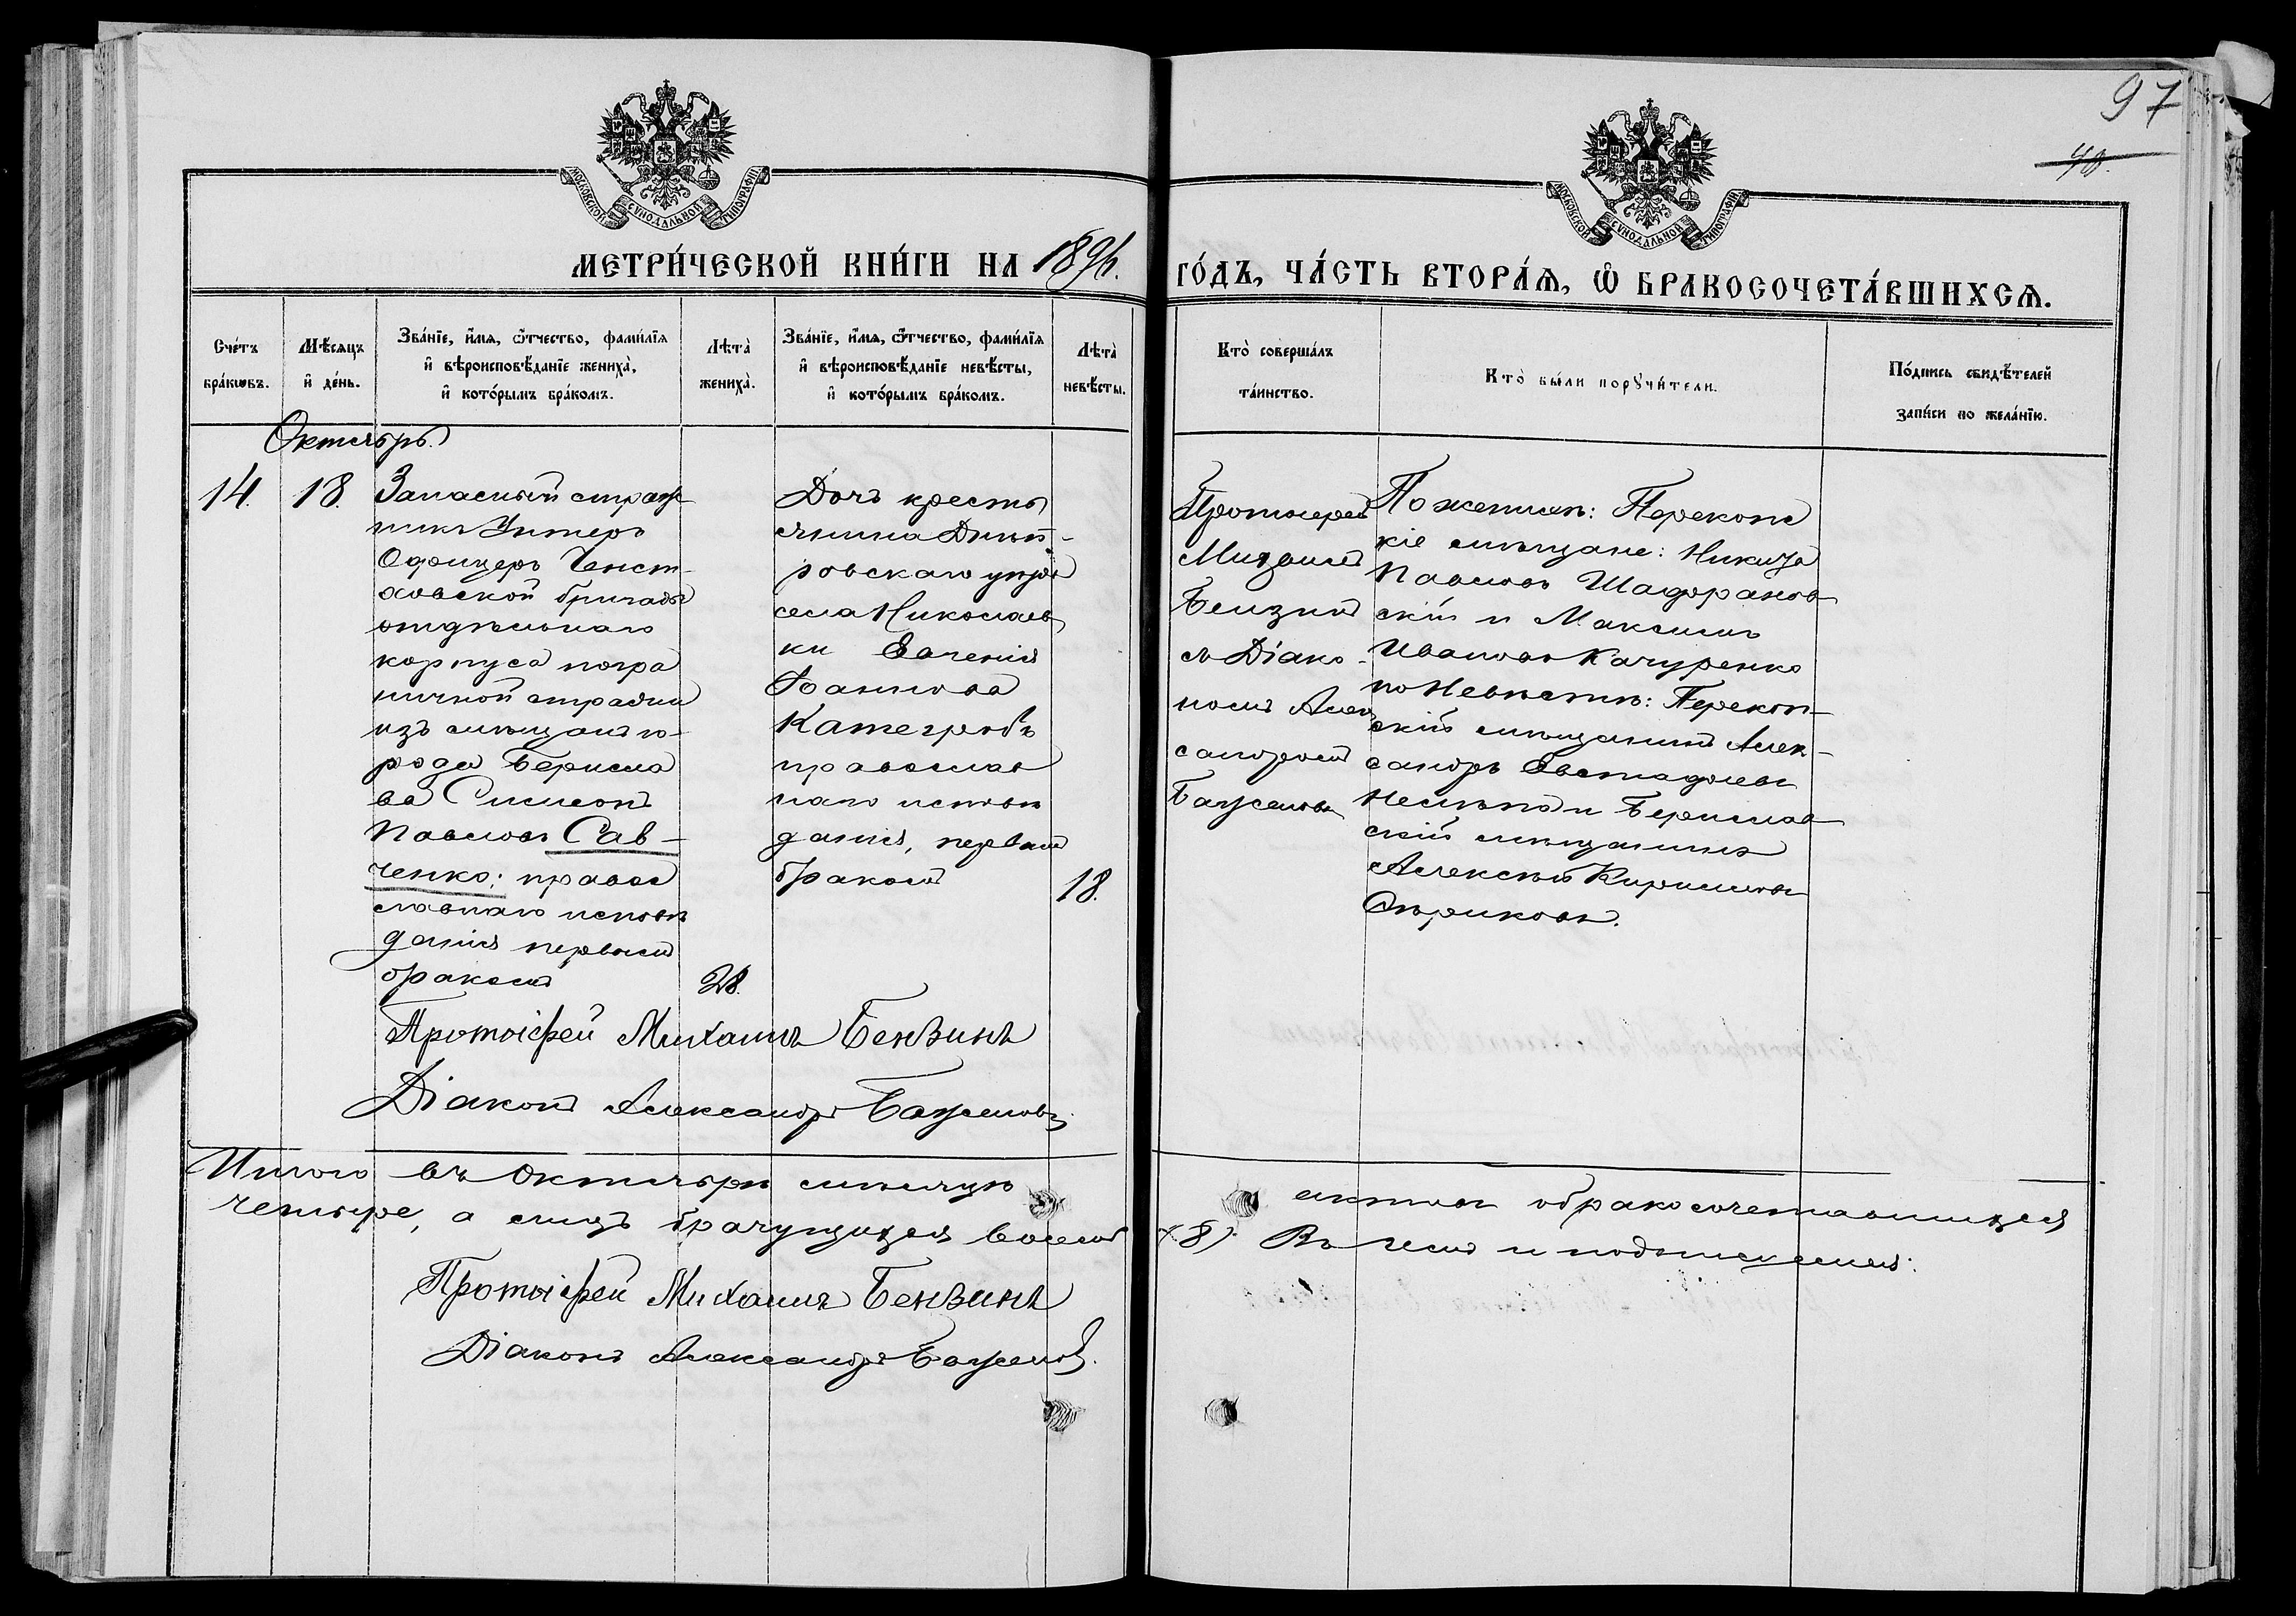 97
40.
МОСКОВСКОЙ СѴНОДАЛЬНОЙ ТИПОГРАФІИ
МОСКОВСКОЙ СѴНОДАЛЬНОЙ ТИПОГРАФІИ
МЕТРИ́ЧЕСКОЙ КНИ́ГИ НА 1896.
ГО́ДЪ, ЧА́СТЬ ВТОРА́Ѧ, Ѡ҆ БРАКОСОЧЕТА́ВШИХСѦ.
Сче́тъ
бра́кѡвъ.
Мѣ́сяцъ
и҆ де́нь.
Зва́нїе, и҆́мѧ, ѻ҆́тчество, фами́лїѧ
и҆ вѣроисповѣ́данїе жениха̀,
и҆ кото́рымъ бра́комъ.
Лѣта̀
жениха̀.
Зва́нїе, и҆́мѧ, ѻ҆́тчество, фами́лїѧ
и҆ вѣроисповѣ́данїе невѣ́сты,
и҆ кото́рымъ бра́комъ.
Лѣта̀
невѣ́сты.
Кто̀ соверша́лъ
та́инство.
Кто̀ бы́ли порꙋчи́тели.
По́дпись свидѣ́телей
запи́си по жела́нїю.
Октябрь.
14.
18.
Запасный страж
никъ Унтеръ
Офицеръ Ченст-
ховской бригады
отдѣльнаго
корпуса погра
ничной стражи
изъ мѣщанъ го-
рода Берисла
ва Симеонъ
Павловъ Сав-
ченко; правос
славнаго исповѣ
данія первымъ
бракомъ
28.
Дочь кресть
янина Днѣп-
ровскаго уѣзда
села Николаев
ки Евгенія
Іоаннова
православ
наго исповѣ
данія, первымъ
бракомъ
18.
Протоіерей
Михаилъ
съ Діако-
номъ Алек
сандромъ
Баженовъ
По женихѣ: Перекопс
кіе мѣщане: Никита
Павловъ Шафранов
скій и Максимъ
Ивановъ Качуренко
по Невѣстѣ: Перекоп-
скій мѣщанинъ Алек-
сандръ Евстафіевъ
и Берислав
скій мѣщанинъ
Алексѣй Кирилловъ
Протоіерей Михаилъ
Діаконъ Александръ Баженовъ
Итого въ Октябрѣ мѣсяцѣ
актовъ о бракосочетавшихся
четыре, а лицъ брачущихся восемь
(8). Въ чемъ и подписуемся:
Протоіерей Михаилъ
Діаконъ Александръ Баженовъ.